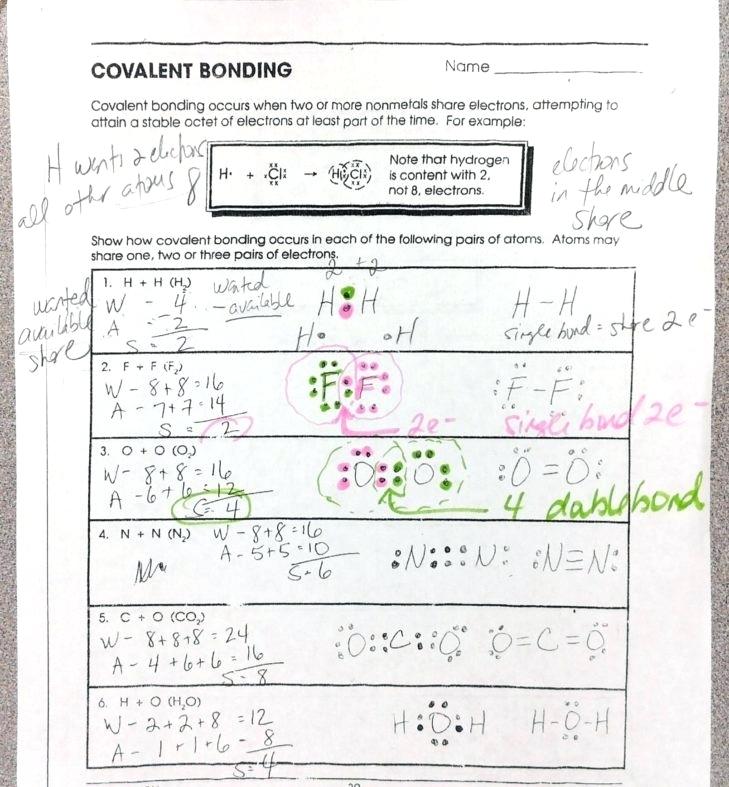 COVALENT BONDING
Name
Covalent bonding occurs when two or more nonmetals share electrons, attempting to
attain a stable octet of electrons at least part of the time. For example:
H wants 2 electrons
all other atoms 8
H· + Cl → H Cl
Note that hydrogen
is content with 2,
not 8, electrons.
electrons
in the middle
share
Show how covalent bonding occurs in each of the following pairs of atoms. Atoms may
share one, two or three pairs of electrons.
wanted
available
share
1. H + H (H₂)
W - 4
A - 2
S = 2
wanted
- available
2 + 2
H : H
H· ·H
H - H
single bond = share 2 e⁻
2. F + F (F₂)
W - 8+8 = 16
A - 7+7 = 14
S = 2
F F
2e-
:F - F:
single bond 2e-
3. O + O (O₂)
W - 8+8 = 16
A - 6+6 = 12
S = 4
O O
:O = O:
4 double bond
4. N + N (N₂)
W - 8+8 = 16
A - 5+5 = 10
S = 6
:N:::N:
:N≡N:
5. C + O (CO₂)
W - 8+8+8 = 24
A - 4+6+6 = 16
S = 8
:O::C::O:
O=C=O
6. H + O (H₂O)
W - 2+2+8 = 12
A - 1+1+6 - 8
S = 4
H:O:H
H-O-H